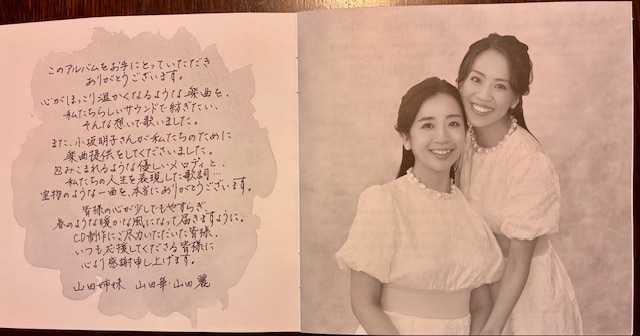 このアルバムをお手にとっていただき
ありがとうございます。
心がほっこり温かくなるような楽曲を、
私たちらしいサウンドで紡ぎたい、
そんな想いで歌いました。
また、小坂明子さんが私たちのために
楽曲提供をしてくださいました。
包みこまれるような優しいメロディと、
私たちの人生を表現した歌詞…
宝物のような一曲を、本当にありがとうございます。
皆様の心が少しでもやすらぎ、
春のような暖かな風になって届きますように。
CD制作にご尽力いただいた皆様、
いつも応援してくださる皆様に
心より感謝申し上げます。
山田姉妹 山田華・山田麗